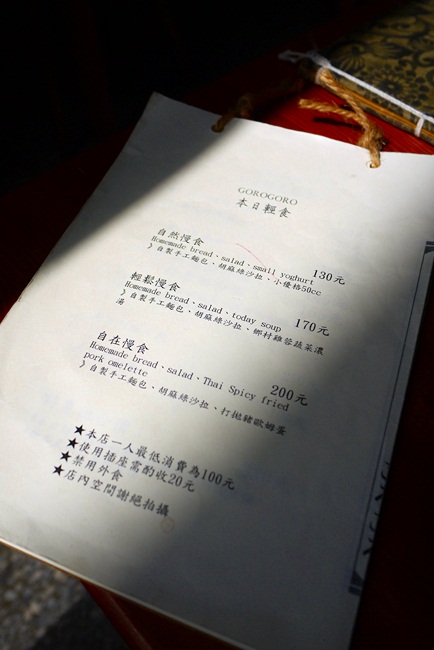 GOROGORO
本日輕食
自然慢食 130元
Homemade bread、salad、small yoghurt
》自製手工麵包、胡麻綠沙拉、小優格50cc
輕鬆慢食 170元
Homemade bread、salad、today soup
》自製手工麵包、胡麻綠沙拉、鄉村雞蓉蔬菜濃
湯
自在慢食 200元
Homemade bread、salad、Thai Spicy fried
pork omelette
》自製手工麵包、胡麻綠沙拉、打拋豬歐姆蛋
★本店一人最低消費為100元
★使用插座需酌收20元
★禁用外食
★店內空間謝絕拍攝